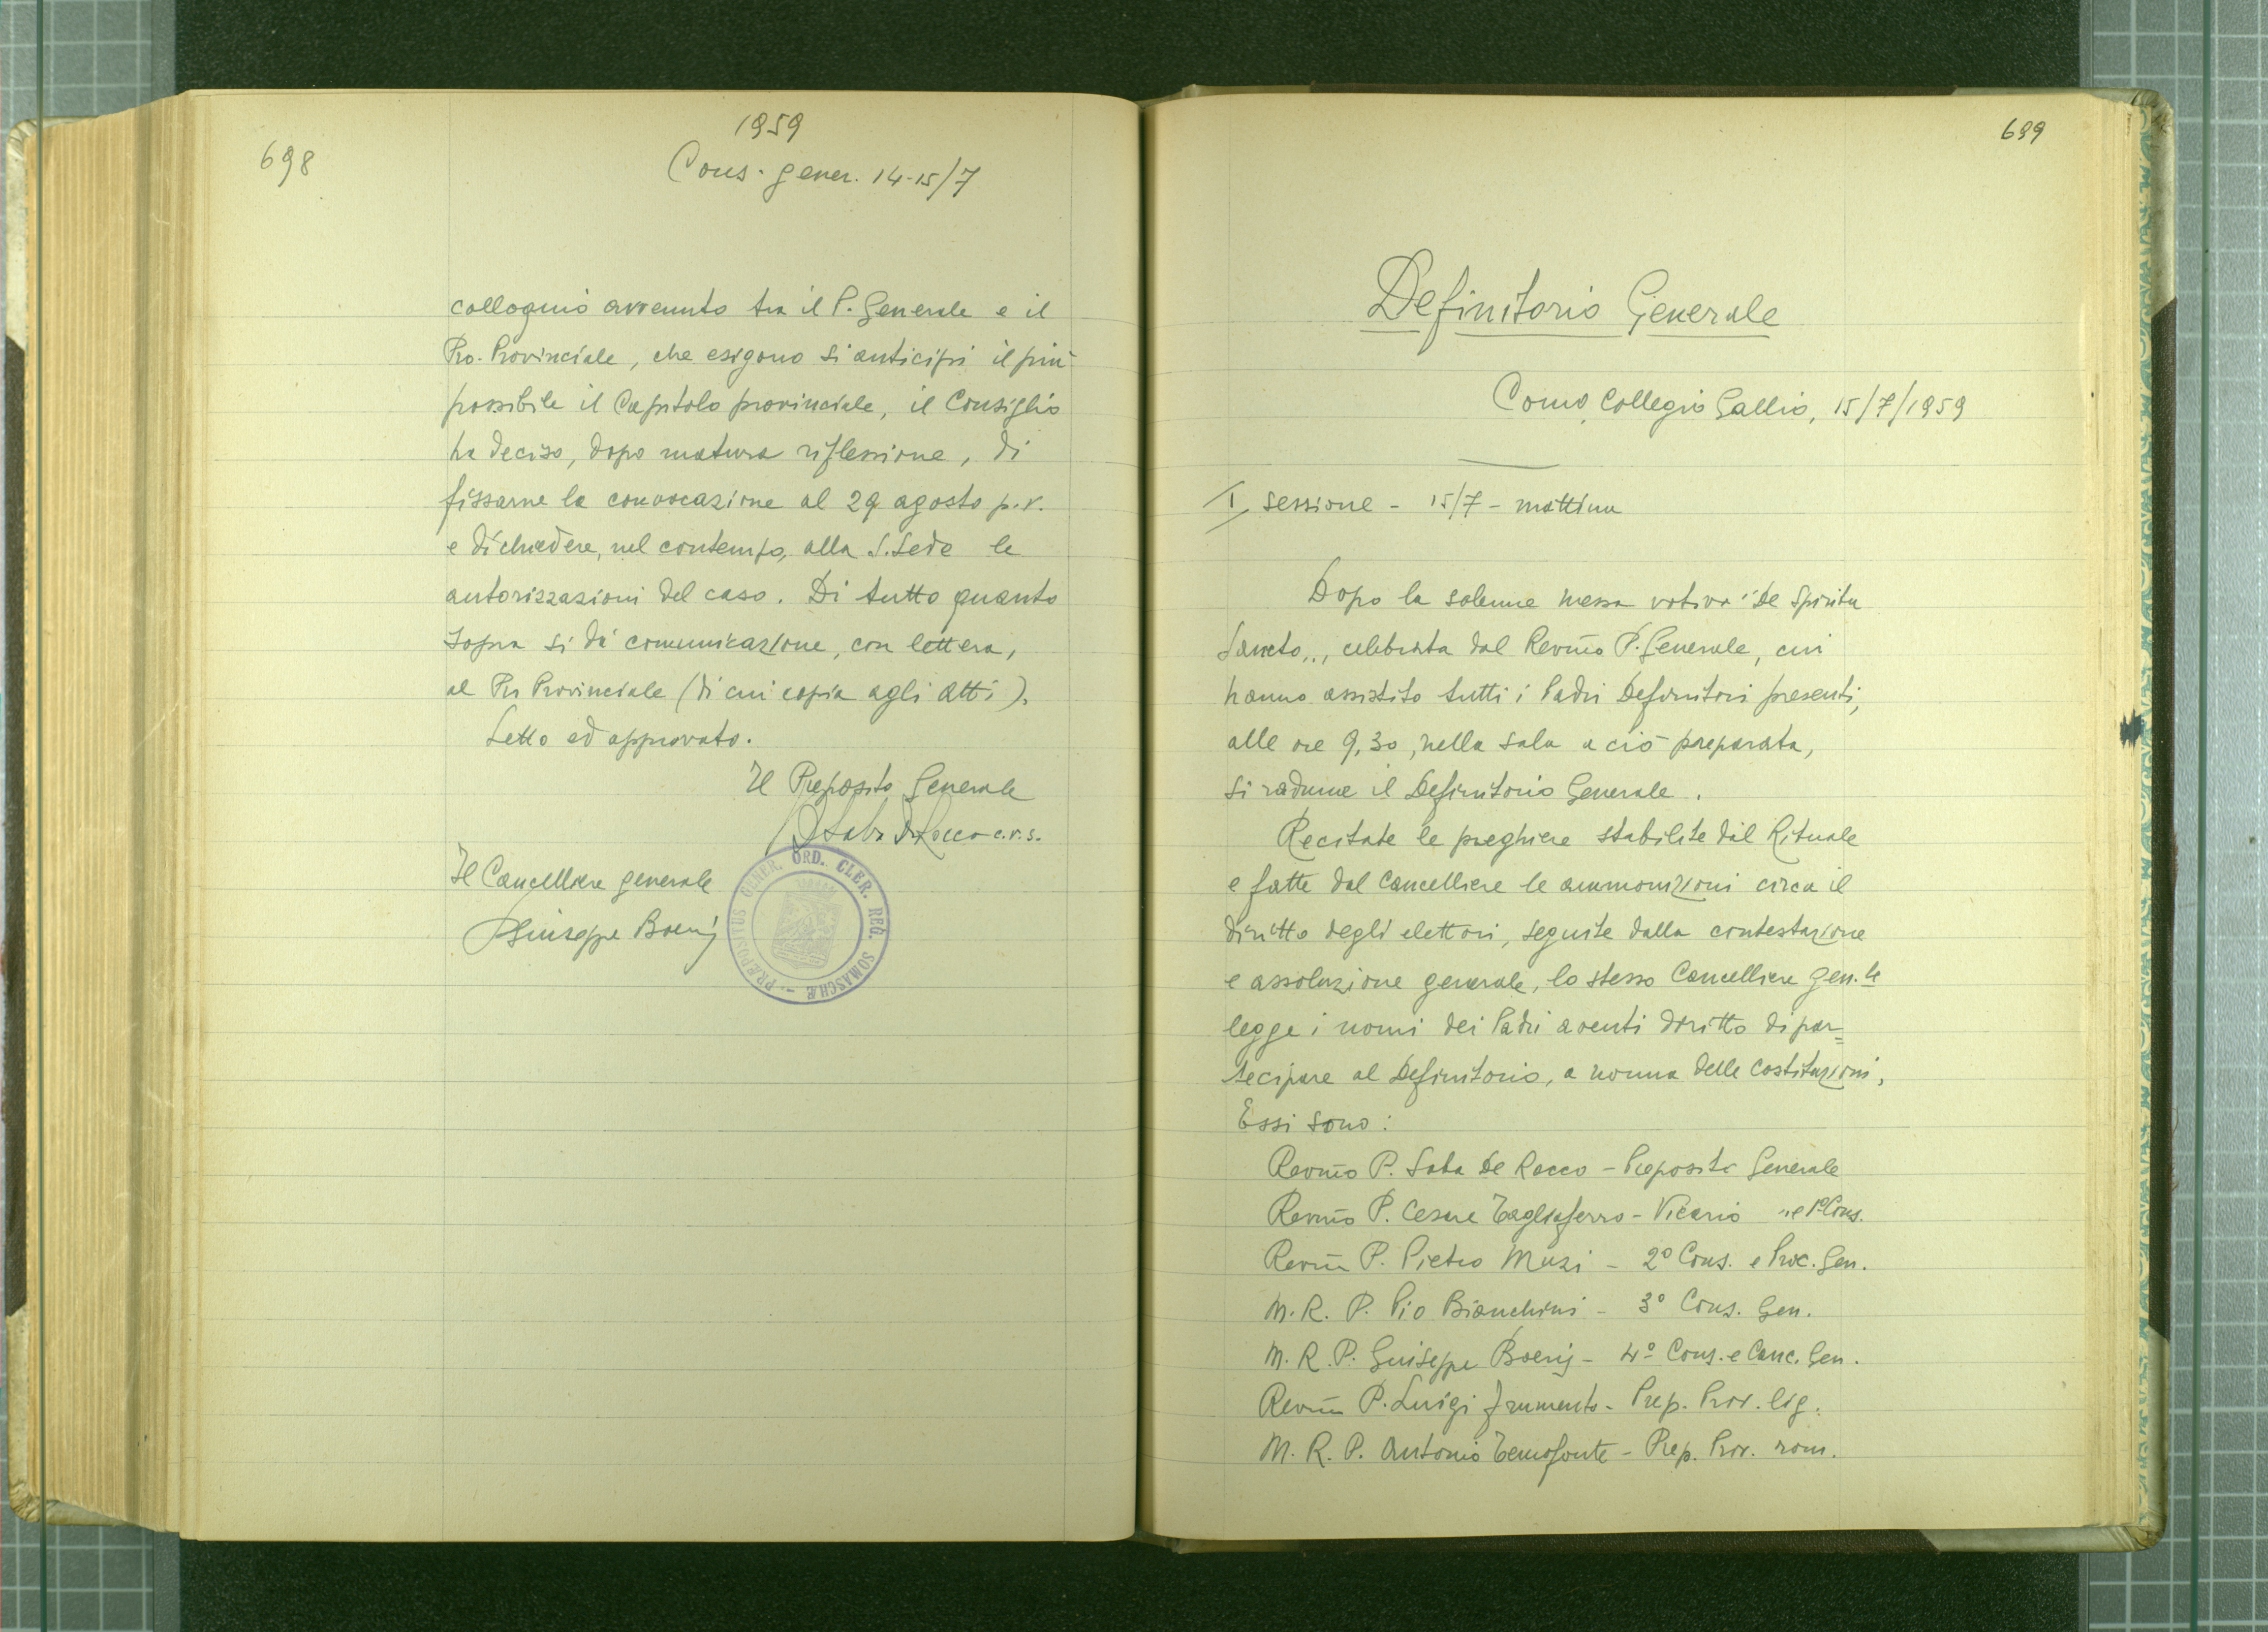 698
1959
Cons. gener. 14-15/7
colloquio avvenuto tra il P. Generale e il
Pro-Provinciale, che esigono si anticipi il più
possibile il Capitolo provinciale, il Consiglio
ha deciso, dopo matura riflessione, di
fissarne la convocazione al 29 agosto p.v.
e di chiedere, nel contempo, alla S. Sede le
autorizzazioni del caso. Di tutto quanto
sopra si dà comunicazione, con lettera,
al Pro Provinciale (di cui copia agli atti).
Letto ed approvato.
Il Preposito Generale
P. Saba De Rocco c.r.s.
Il Cancelliere generale
P. Giuseppe Boeris
PRÆPOSITUS GENER. ORD. CLER. REG. SOMASCHÆ
699
Definitorio Generale
Como, Collegio Gallio, 15/7/1959
I sessione - 15/7 - mattina
Dopo la solenne messa votiva "De Spiritu
Sancto„, celebrata dal Revmo P. Generale, cui
hanno assistito tutti i Padri Definitori presenti,
alle ore 9,30, nella sala a ciò preparata,
si radune il Definitorio Generale.
Recitate le preghiere stabilite dal Rituale
e fatte dal Cancelliere le ammonizioni circa il
diritto degli elettori, seguite dalla contestazione
e assoluzione generale, lo stesso Cancelliere gen.le
legge i nomi dei Padri aventi diritto di par=
tecipare al Definitorio, a norma delle Costituzioni.
Essi sono:
Revmo P. Saba De Rocco - Preposito Generale
Revmo P. Cesare Tagliaferro - Vicario " e 1º Cons.
Revmo P. Pietro Muzi - 2º Cons. e Proc. Gen.
M. R. P. Pio Bianchini - 3º Cons. Gen.
M. R. P. Giuseppe Boeris - 4º Cons. e Canc. Gen.
Revmo P. Luigi Frumento - Prep. Prov. lig.
M. R. P. Antonio Temofonte - Prep. Prov. rom.